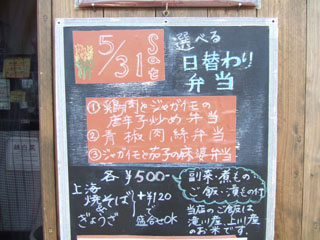 5/31 Sat
選べる
日替わり
弁当
①鶏肉とジャガイモの
唐辛子炒め弁当
②青椒肉絲弁当
③ジャガイモと茄子の麻婆弁当
各¥500-
上海
焼そば
&
ぎょうざ
+¥120
で
盛合せOK
副菜・煮もの
ご飯・漬もの付
当店のご飯は
滝川産・上川産
のお米です。